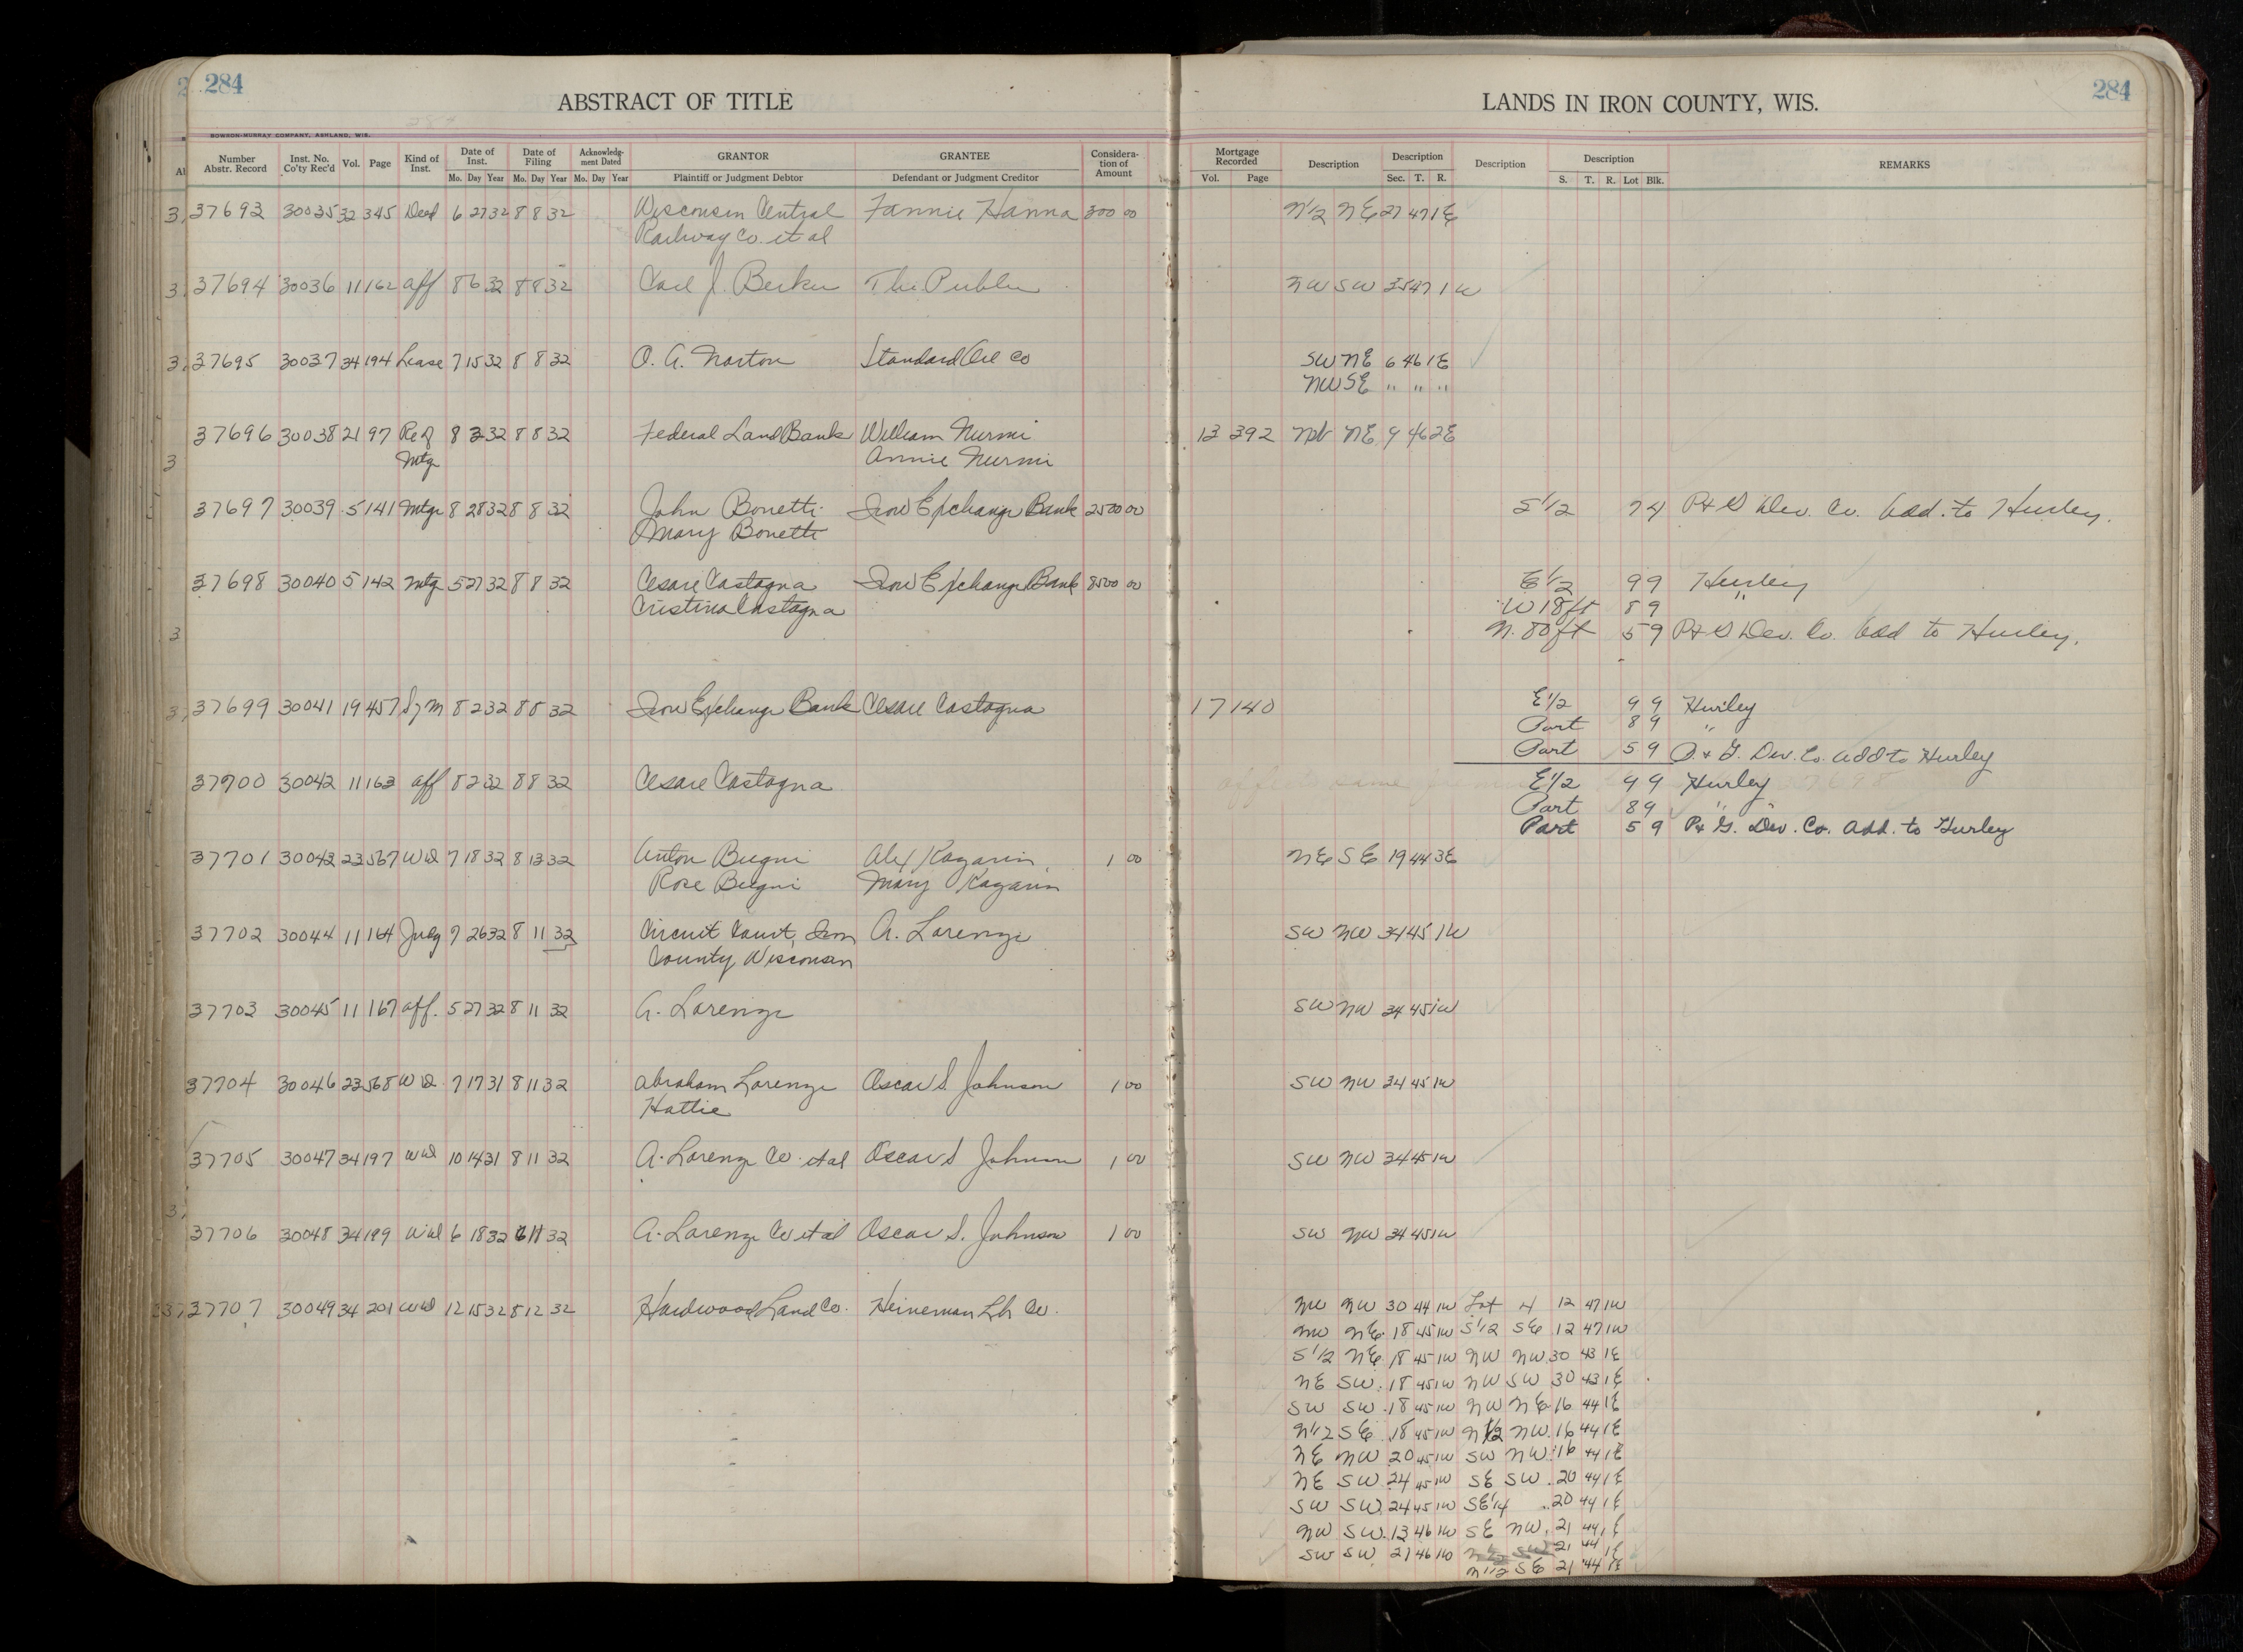 284
ABSTRACT OF TITLE
LANDS IN IRON COUNTY, WIS.
284
BOWSON-MURRAY COMPANY, ASHLAND, WIS.
Number Abstr. Record Inst. No. Co'ty Rec'd Vol. Page Kind of Inst. Date of Inst. Date of Filing Acknowledgment Dated GRANTOR GRANTEE Consideration of Amount Mortgage Recorded Description Description Description Description REMARKS
Mo. Day Year Mo. Day Year Mo. Day Year Plaintiff or Judgment Debtor Defendant or Judgment Creditor Vol. Page Sec. T. R. S. T. R. Lot Blk.
37693 30035 32 345 Deed 6 27 32 8 8 32 Wisconsin Central Fannie Hanna 300 00 N1/2 NE 27 47 1E
Railway Co. et al
37694 30036 11 162 aff 8 6 32 8 8 32 Carl J. Becker The Public NW SW 35 47 1W
37695 30037 34 194 Lease 7 15 32 8 8 32 O. A. Norton Standard Oil Co SW NE 6 46 1E
NW SE " " "
37696 30038 21 97 Rel 8 3 32 8 8 32 Federal Land Bank William Nurmi 13 392 Npt NE 9 46 2E
Mtg Annie Nurmi
37697 30039 5 141 Mtg 8 28 32 8 8 32 John Bonetti Iron Exchange Bank 2500 00 S1/2 7 4 P+G Dev. Co. Add. to Hurley.
Mary Bonetti
37698 30040 5 142 Mtg 5 27 32 8 8 32 Cesare Castagna Iron Exchange Bank 8500 00 E1/2 9 9 Hurley
Cristina Castagna W 18 ft 8 9 "
N. 80 ft 5 9 P+G Dev. Co. Add to Hurley.
37699 30041 19 457 8 2 32 8 8 32 Iron Exchange Bank Cesare Castagna 17 140 E1/2 9 9 Hurley
Part 8 9 "
Part 5 9 P.+G. Dev. Co. Add to Hurley
37700 30042 11 163 aff 8 2 32 8 8 32 Cesare Castagna E1/2 9 9 Hurley
Part 8 9 "
Part 5 9 P+G. Dev. Co. Add. to Hurley
37701 30043 23 567 WD 7 18 32 8 13 32 Anton Bugni Alex Kagarin 1 00 NE SE 19 44 3E
Rose Bugni Mary Kagarin
37702 30044 11 164 Judg 7 26 32 8 11 32 Circuit Court, Iron A. Lorenzi SW NW 34 45 1W
County Wisconsin
37703 30045 11 167 aff. 5 27 32 8 11 32 A. Lorenzi SW NW 34 45 1W
37704 30046 23 568 WD 7 17 31 8 11 32 Abraham Lorenzi Oscar S. Johnson 1 00 SW NW 34 45 1W
Hattie
37705 30047 34 197 WD 10 14 31 8 11 32 A. Lorenzi Co. et al Oscar S Johnson 1 00 SW NW 34 45 1W
37706 30048 34 199 WD 6 18 32 8 11 32 A. Lorenzi Co et al Oscar S. Johnson 1 00 SW NW 34 45 1W
37707 30049 34 201 WD 12 15 32 8 12 32 Hardwood Land Co. Heineman Lbr Co. NW NW 30 44 1W Lot 4 12 47 1W
NW NE 18 45 1W S1/2 SE 12 47 1W
S1/2 NE 18 45 1W NW NW 30 43 1E
NE SW 18 45 1W NW SW 30 43 1E
SW SW 18 45 1W NW NE 16 44 1E
N1/2 SE 18 45 1W N1/2 NW 16 44 1E
NE NW 20 45 1W SW NW 16 44 1E
NE SW 24 45 1W SE SW 20 44 1E
SW SW 24 45 1W SE1/4 20 44 1E
NW SW 13 46 1W SE NW 21 44 1E
SW SW 21 46 1W 21 44 1E
N1/2 SE 21 44 1E